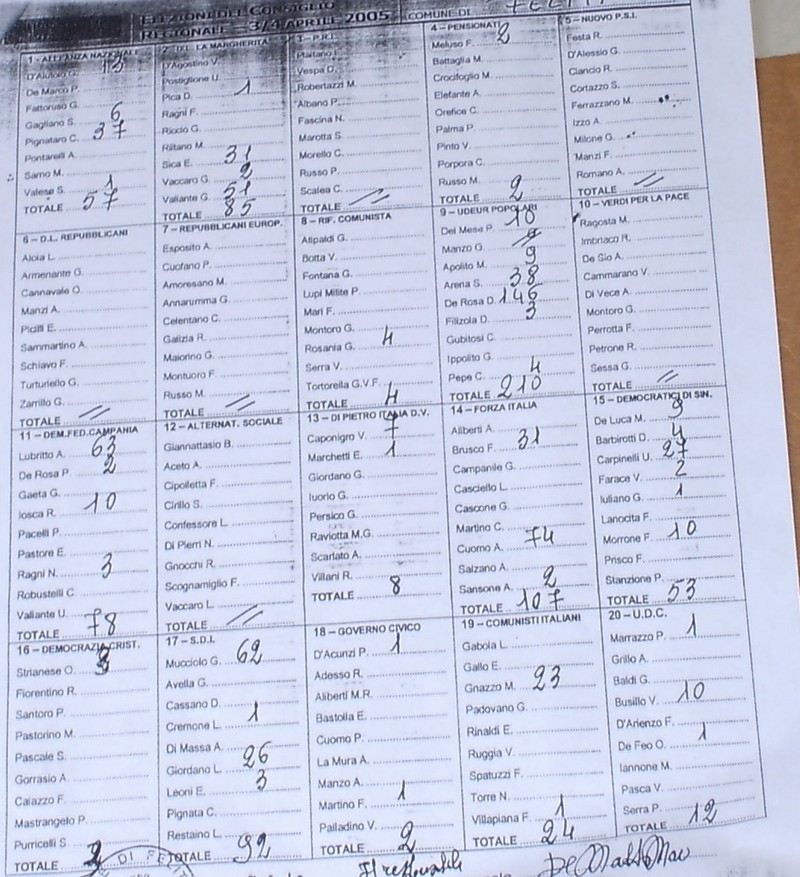 ELEZIONI DEL CONSIGLIO
REGIONALE - 3/4 APRILE 2005 COMUNE DI
1 - ALLEANZA NAZIONALE
D'Aiutolo G. 13
De Marco P.
Fattoruso G.
Gagliano S. 6
Pignataro C. 37
Pontarelli A.
Sarno M.
Valese S. 1
TOTALE 57
2 - D.L. LA MARGHERITA
D'Agostino V.
Postiglione U.
Pica D. 1
Ragni F.
Riccio G.
Ritano M.
Sica E. 31
Vaccaro G. 2
Valiante G. 51
TOTALE 85
3 - P.R.I.
Plaitano F.
Vespa D.
Robertazzi M.
Albano P.
Fascina N.
Marotta S.
Morello C.
Russo P.
Scalea C.
TOTALE //
4 - PENSIONATI
Meluso F. 2
Battaglia M.
Crocifoglio M.
Elefante A.
Orefice C.
Palma P.
Pinto V.
Porpora C.
Russo M.
TOTALE 2
5 - NUOVO P.S.I.
Festa R.
D'Alessio G.
Ciancio R.
Cortazzo S.
Ferrazzano M.
Izzo A.
Milone G.
Manzi F.
Romano A.
TOTALE //
6 - D.L. REPUBBLICANI
Aloia L.
Armenante G.
Cannavale O.
Manzi A.
Picilli E.
Sammartino A.
Schiavo F.
Turturiello G.
Zarrillo G.
TOTALE //
7 - REPUBBLICANI EUROP.
Esposito A.
Cuofano P.
Amoresano M.
Annarumma G.
Celentano C.
Galizia R.
Maiorino G.
Montuoro F.
Russo M.
TOTALE //
8 - RIF. COMUNISTA
Atipaldi G.
Botta V.
Fontana G.
Lupi Milite P.
Mari F.
Montoro G.
Rosania G. 4
Serra V.
Tortorella G.V.F.
TOTALE 4
9 - UDEUR POPOLARI
Del Mese P. 10
Manzo G.
Apolito M. 9
Arena S. 38
De Rosa D. 146
Filizola D. 3
Gubitosi C.
Ippolito G.
Pepe C. 4
TOTALE 210
10 - VERDI PER LA PACE
Ragosta M.
Imbriaco R.
De Sio A.
Cammarano V.
Di Vece A.
Montoro G.
Perrotta F.
Petrone R.
Sessa G.
TOTALE //
11 - DEM.FED.CAMPANIA
Lubritto A. 63
De Rosa P. 2
Gaeta G.
Iosca R. 10
Pacelli P.
Pastore E.
Ragni N. 3
Robustelli C
Valiante U.
TOTALE 78
12 - ALTERNAT. SOCIALE
Giannattasio B.
Aceto A.
Cipolletta F.
Cirillo S.
Confessore L.
Di Pierri N.
Gnocchi R.
Scognamiglio F.
Vaccaro L.
TOTALE //
13 - DI PIETRO ITALIA D.V.
Caponigro V. 7
Marchetti E. 1
Giordano G.
Iuorio G.
Persico G.
Raviotta M.G.
Scarlato A.
Villani R.
TOTALE 8
14 - FORZA ITALIA
Aliberti A.
Brusco F. 31
Campanile G.
Casciello L.
Cascone G.
Martino C.
Cuomo A. 74
Salzano A.
Sansone A. 2
TOTALE 107
15 - DEMOCRATICI DI SIN.
De Luca M. 9
Barbirotti D. 4
Carpinelli U. 27
Farace V. 2
Iuliano G. 1
Lanocita F.
Morrone F. 10
Prisco F.
Stanzione P.
TOTALE 53
16 - DEMOCRAZIA CRIST.
Strianese O.
Fiorentino R.
Santoro P.
Pastorino M.
Pascale S.
Gorrasio A.
Calazzo F.
Mastrangelo P.
Purricelli S.
TOTALE
17 - S.D.I.
Mucciolo G. 62
Avella G.
Cassano D.
Cremone L. 1
Di Massa A.
Giordano L. 26
Leoni E. 3
Pignata C.
Restaino L.
TOTALE 92
18 - GOVERNO CIVICO
D'Acunzi P. 1
Adesso R.
Aliberti M.R.
Bastolla E.
Cuomo P.
La Mura A.
Manzo A.
Martino F. 1
Palladino V.
TOTALE 2
19 - COMUNISTI ITALIANI
Gabola L.
Gallo E.
Gnazzo M. 23
Padovano G.
Rinaldi E.
Ruggia V.
Spatuzzi F.
Torre N.
Villapiana F. 1
TOTALE 24
20 - U.D.C.
Marrazzo P. 1
Grillo A.
Baldi G.
Busillo V. 10
D'Arienzo F.
De Feo O. 1
Iannone M.
Pasca V.
Serra P.
TOTALE 12